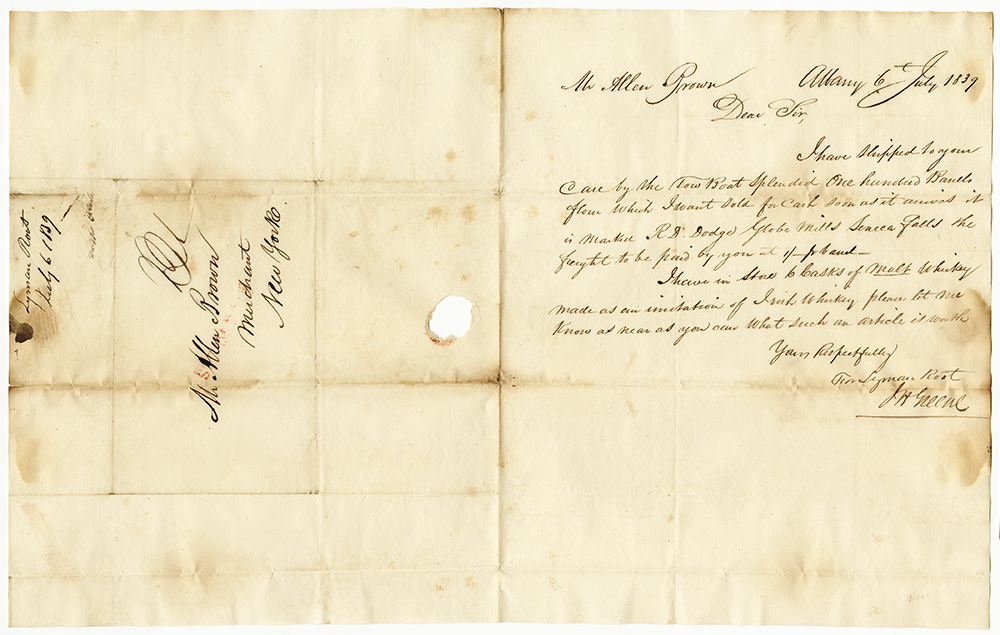 Mr Allen Brown Albany 6th July 1839
Dear Sir,
I have shipped to your
Care by the Tow Boat Splendid One hundred Barrels
flour Which I want sold for Cash soon as it arrives it
is Marked R. D. Dodge Globe Mills Seneca Falls the
freight to be paid by you at 1/- pr barrel
I have in Store 6 Casks of Malt Whiskey
made as an imitation of Irish Whiskey please let me
Know as near as you can What such an article is worth
Yours Respectfully
For Lyman Root
J H Greene
Mr Allen Brown
Merchant
New York
Lyman Root
July 6 1839